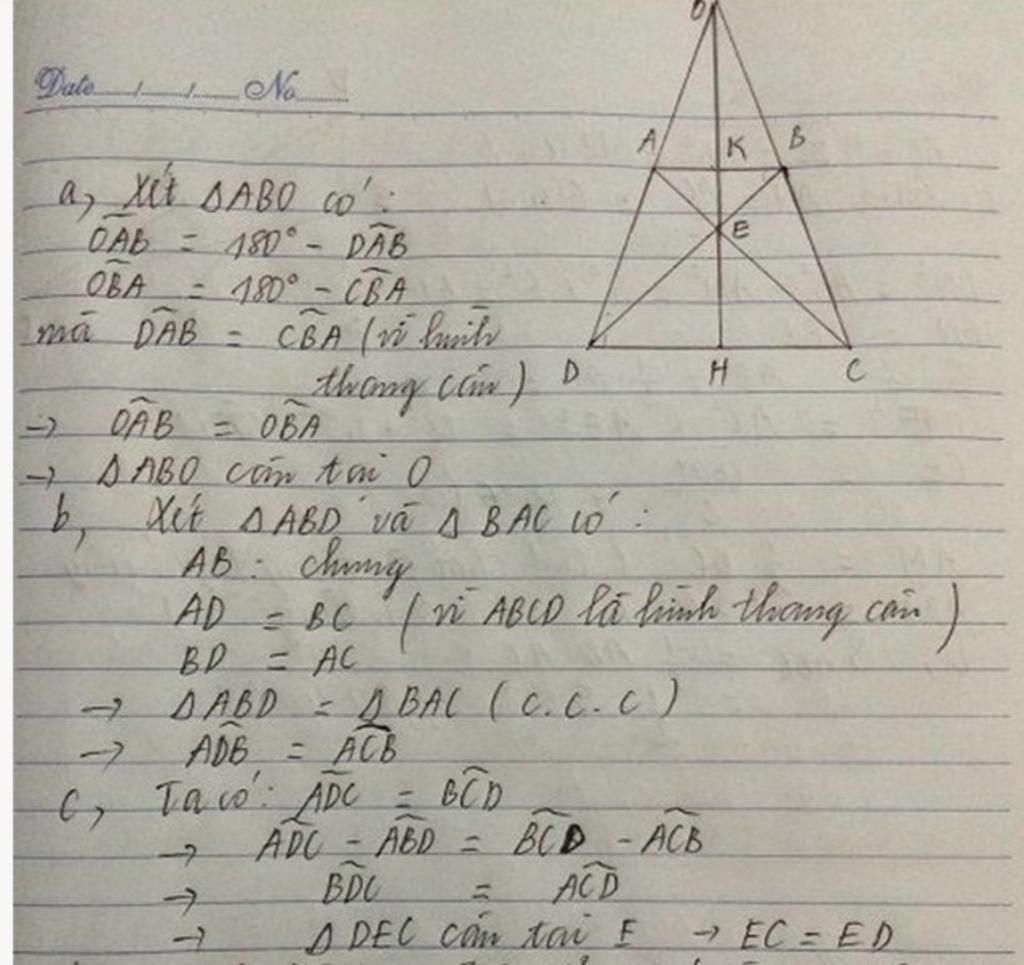 O
Date / / No
A K B
E
D H C
a, Xét ΔABO có:
\widehat{OAB} = 180° - \widehat{DAB}
\widehat{OBA} = 180° - \widehat{CBA}
mà \widehat{DAB} = \widehat{CBA} (vì hình
thang cân)
→ \widehat{OAB} = \widehat{OBA}
→ ΔABO cân tại O
b, Xét ΔABD và ΔBAC có:
AB: chung
AD = BC (vì ABCD là hình thang cân)
BD = AC
→ ΔABD = ΔBAC (C.C.C)
→ \widehat{ADB} = \widehat{ACB}
c, Ta có: \widehat{ADC} = \widehat{BCD}
→ \widehat{ADC} - \widehat{ABD} = \widehat{BCD} - \widehat{ACB}
→ \widehat{BDC} = \widehat{ACD}
→ ΔDEC cân tại E → EC = ED